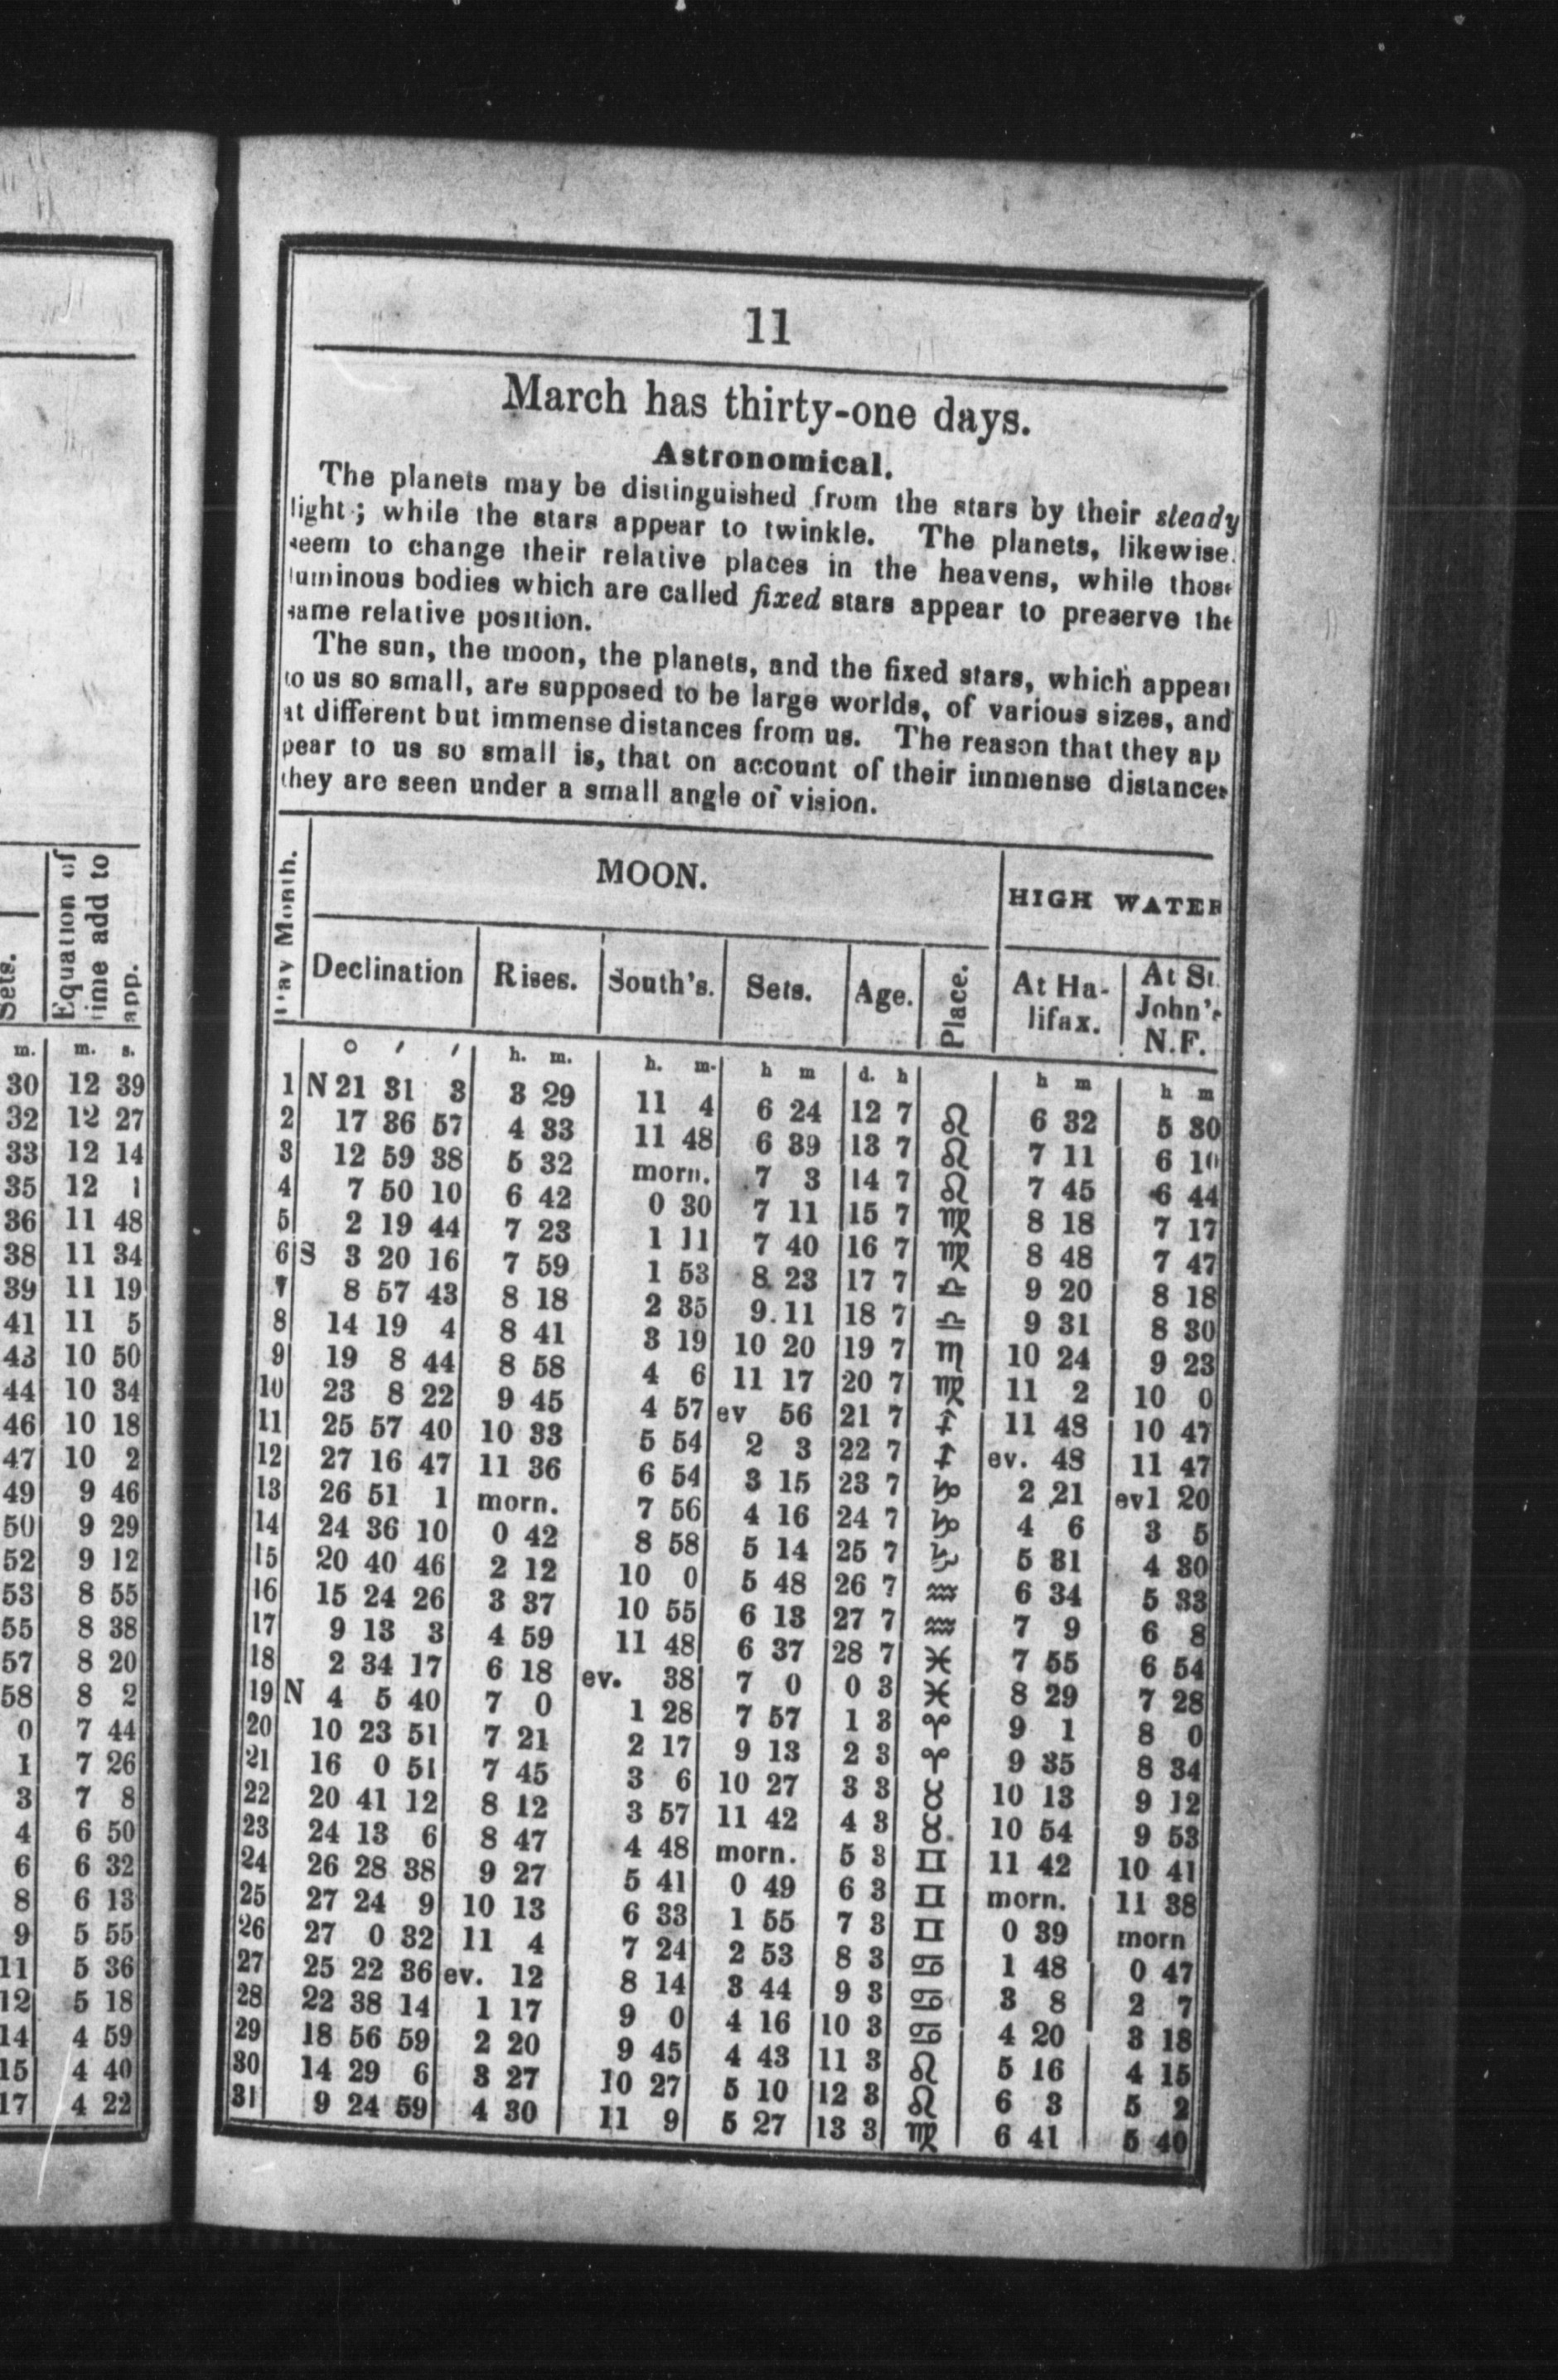 11
March has thirty-one days.
Astronomical.
The planets may be distinguished from the stars by their steady
light; while the stars appear to twinkle. The planets, likewise
seem to change their relative places in the heavens, while those
luminous bodies which are called fixed stars appear to preserve the
same relative position.
The sun, the moon, the planets, and the fixed stars, which appear
to us so small, are supposed to be large worlds, of various sizes, and
at different but immense distances from us. The reason that they ap
pear to us so small is, that on account of their immense distances
they are seen under a small angle of vision.
Day Month. MOON. HIGH WATER
Declination Rises. South's. Sets. Age. Place. At Halifax. At St. John's N.F.
° ′ ′ h. m. h. m. h m d. h h m h m
1 N 21 31 3 3 29 11 4 6 24 12 7 ♌ 6 32 5 30
2 17 36 57 4 33 11 48 6 39 13 7 ♌ 7 11 6 10
3 12 59 38 5 32 morn. 7 3 14 7 ♌ 7 45 6 44
4 7 50 10 6 42 0 30 7 11 15 7 ♍ 8 18 7 17
5 2 19 44 7 23 1 11 7 40 16 7 ♍ 8 48 7 47
6 S 3 20 16 7 59 1 53 8 23 17 7 ♎ 9 20 8 18
7 8 57 43 8 18 2 35 9 11 18 7 ♎ 9 31 8 30
8 14 19 4 8 41 3 19 10 20 19 7 ♏ 10 24 9 23
9 19 8 44 8 58 4 6 11 17 20 7 ♍ 11 2 10 0
10 23 8 22 9 45 4 57 ev 56 21 7 ♐ 11 48 10 47
11 25 57 40 10 33 5 54 2 3 22 7 ♐ ev. 48 11 47
12 27 16 47 11 36 6 54 3 15 23 7 ♑ 2 21 ev1 20
13 26 51 1 morn. 7 56 4 16 24 7 ♑ 4 6 3 5
14 24 36 10 0 42 8 58 5 14 25 7 ♑ 5 31 4 30
15 20 40 46 2 12 10 0 5 48 26 7 ♒ 6 34 5 33
16 15 24 26 3 37 10 55 6 13 27 7 ♒ 7 9 6 8
17 9 13 3 4 59 11 48 6 37 28 7 ♓ 7 55 6 54
18 2 34 17 6 18 ev. 38 7 0 0 3 ♓ 8 29 7 28
19 N 4 5 40 7 0 1 28 7 57 1 3 ♈ 9 1 8 0
20 10 23 51 7 21 2 17 9 13 2 3 ♈ 9 35 8 34
21 16 0 51 7 45 3 6 10 27 3 3 ♉ 10 13 9 12
22 20 41 12 8 12 3 57 11 42 4 3 ♉ 10 54 9 53
23 24 13 6 8 47 4 48 morn. 5 3 ♊ 11 42 10 41
24 26 28 38 9 27 5 41 0 49 6 3 ♊ morn. 11 38
25 27 24 9 10 13 6 33 1 55 7 3 ♊ 0 39 morn
26 27 0 32 11 4 7 24 2 53 8 3 ♋ 1 48 0 47
27 25 22 36 ev. 12 8 14 3 44 9 3 ♋ 3 8 2 7
28 22 38 14 1 17 9 0 4 16 10 3 ♋ 4 20 3 18
29 18 56 59 2 20 9 45 4 43 11 3 ♌ 5 16 4 15
30 14 29 6 3 27 10 27 5 10 12 3 ♌ 6 3 5 2
31 9 24 59 4 30 11 9 5 27 13 3 ♍ 6 41 5 40
Sets. Equation of time add to app.
m. m. s.
30 12 39
32 12 27
33 12 14
35 12 1
36 11 48
38 11 34
39 11 19
41 11 5
43 10 50
44 10 34
46 10 18
47 10 2
49 9 46
50 9 29
52 9 12
53 8 55
55 8 38
57 8 20
58 8 2
0 7 44
1 7 26
3 7 8
4 6 50
6 6 32
8 6 13
9 5 55
11 5 36
12 5 18
14 4 59
15 4 40
17 4 22